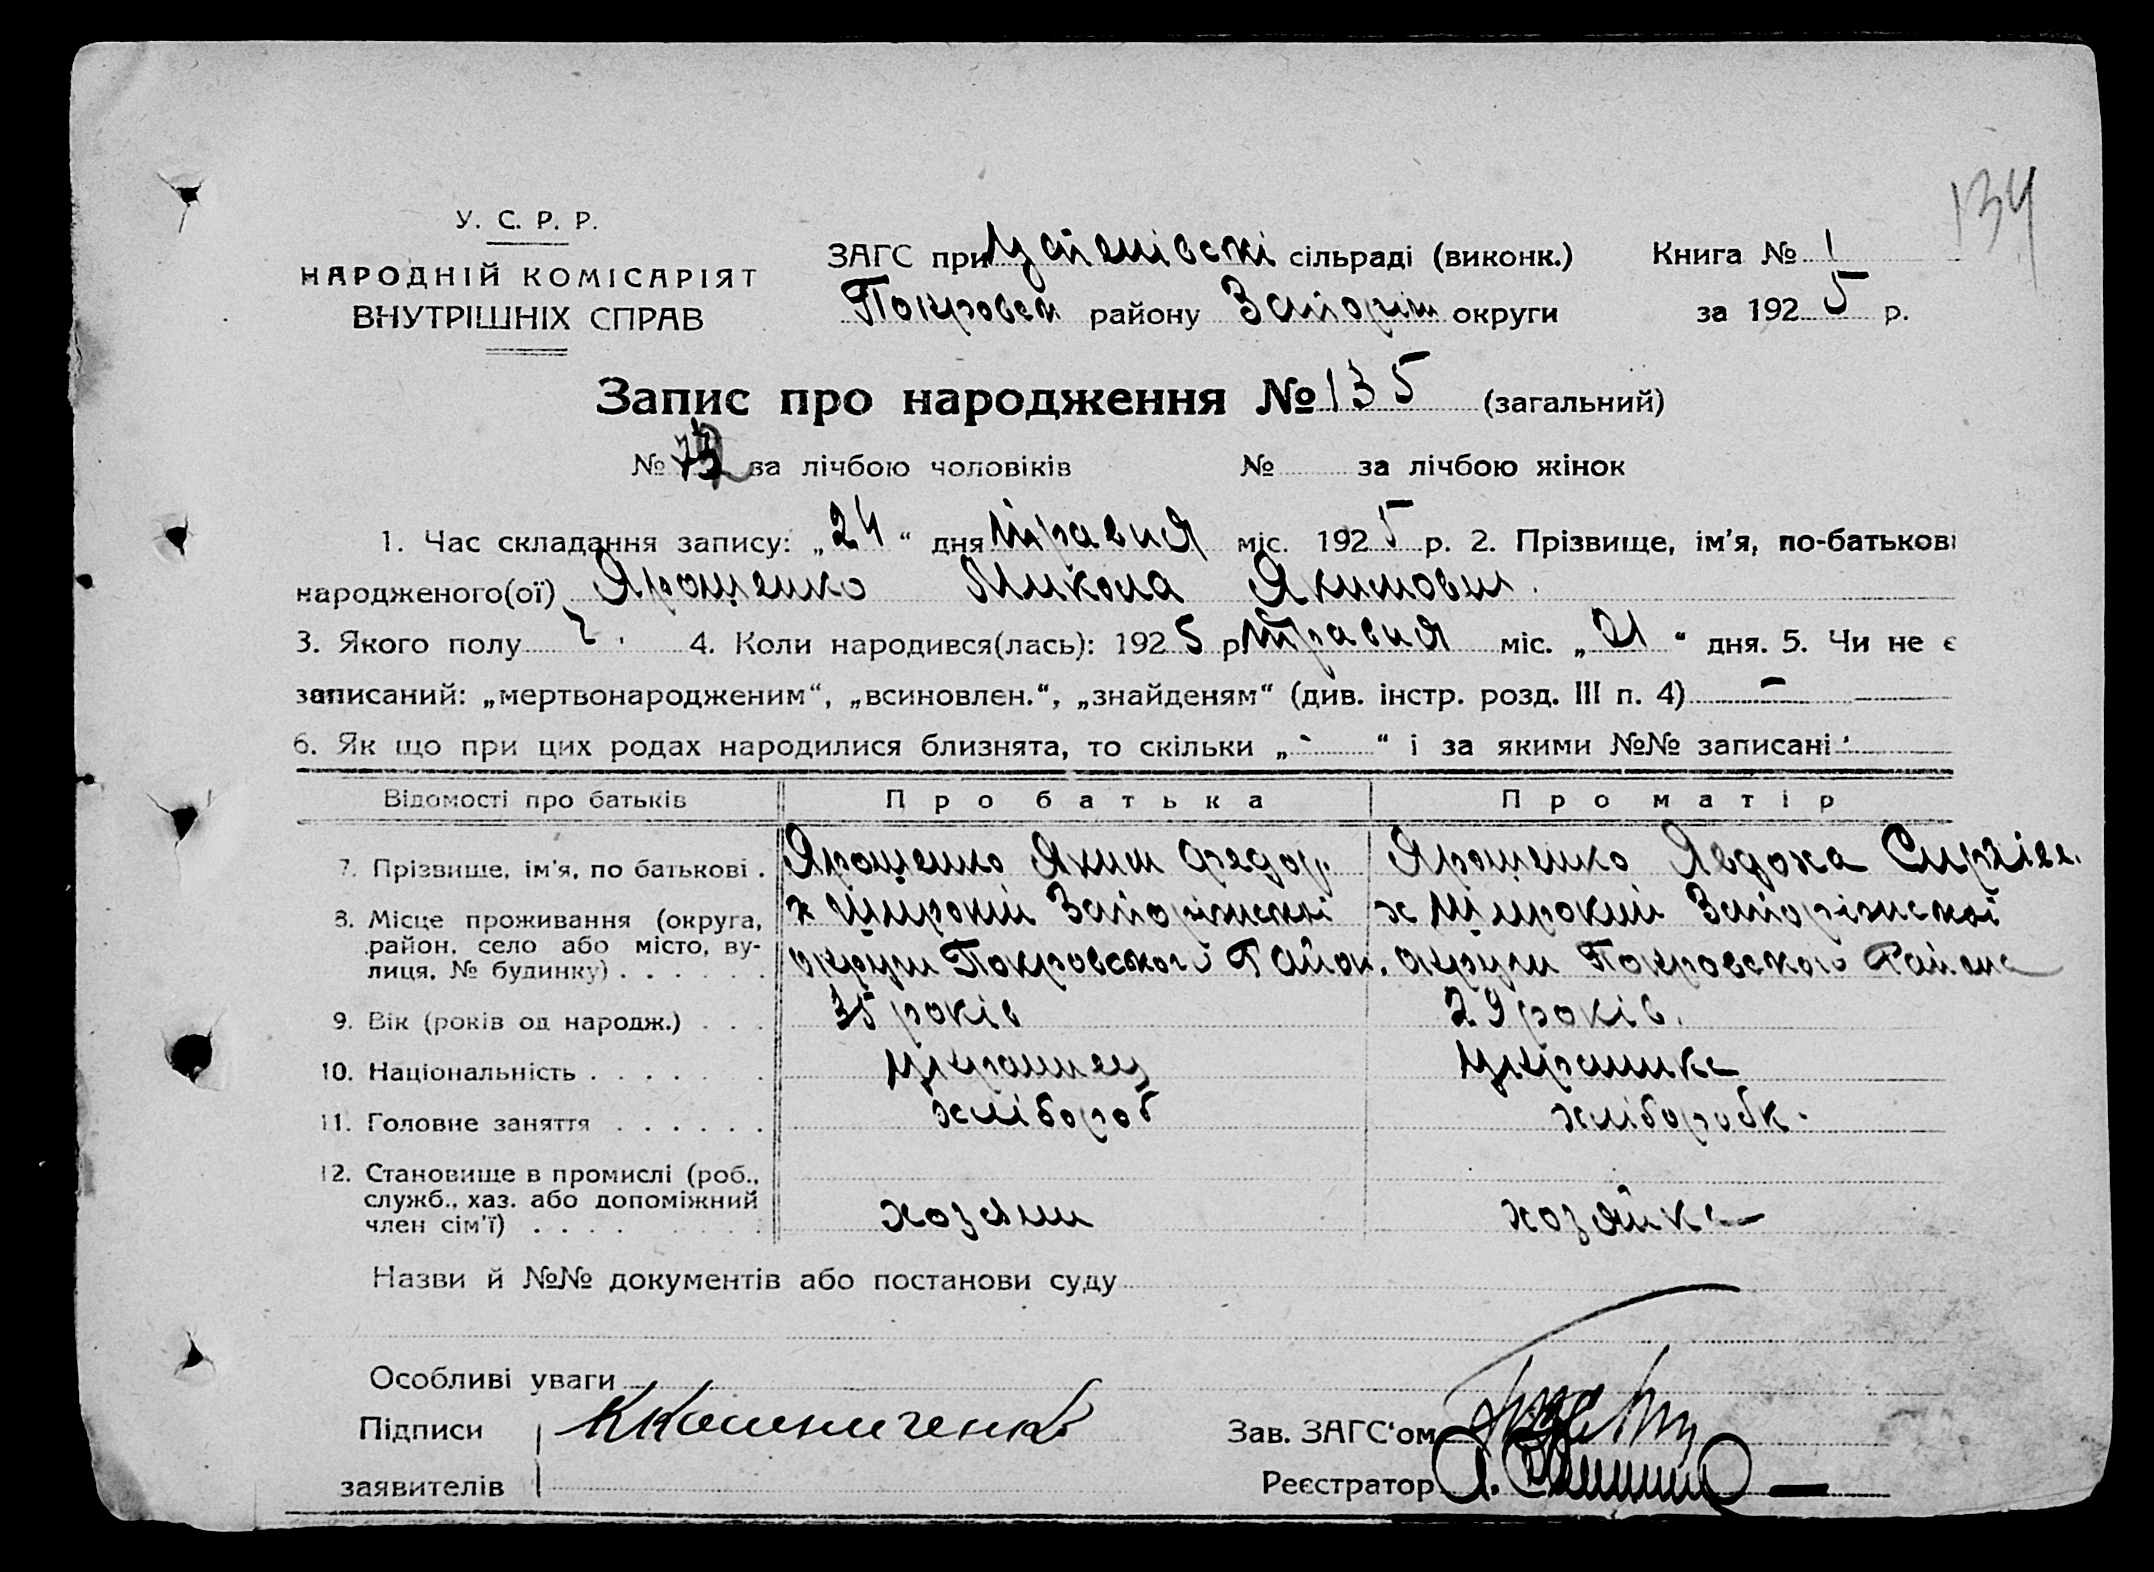 134
У. С. Р. Р.
НАРОДНІЙ КОМІСАРІЯТ
ВНУТРІШНІХ СПРАВ
ЗАГС при сільраді (виконк.)
Покровськ району Запоріж округи
Книга № 1
за 1925 р.
Запис про народження № 135 (загальний)
№ за лічбою чоловіків № за лічбою жінок
1. Час складання запису: „24“ дня травня міс. 1925 р. 2. Прізвище, ім'я, по-батькові
народженого(ої) Ярошенко Микола Якимович.
3. Якого полу ч. 4. Коли народився(лась): 1925 р травня міс. „21“ дня. 5. Чи не є
записаний: „мертвонародженим“, „всиновлен.“, „знайденям“ (див. інстр. розд. III п. 4) -
6. Як що при цих родах народилися близнята, то скільки „-“ і за якими №№ записані
Відомості про батьків Про батька Про матір
7. Прізвище, ім'я, по батькові . Ярошенко Яким Федор. Ярошенко Явдоха Сиргіев.
8. Місце проживання (округа, район, село або місто, вулиця, № будинку) . . . . . .
х Широкий Запоріжської
округи Покровського Район.
х Широкий Запоріжської
округи Покровського Района
9. Вік (років од народж.) . . . 35 років 29 років.
10. Національність . . . . . . Украинец Украинка
11. Головне заняття . . . . . . хлібороб хліборобк.
12. Становище в промислі (роб., служб., хаз. або допоміжний член сім'ї) . . . . хозяин хозяйка
Назви й №№ документів або постанови суду
Особливі уваги
Підписи
заявителів
Зав. ЗАГС'ом
Реєстратор